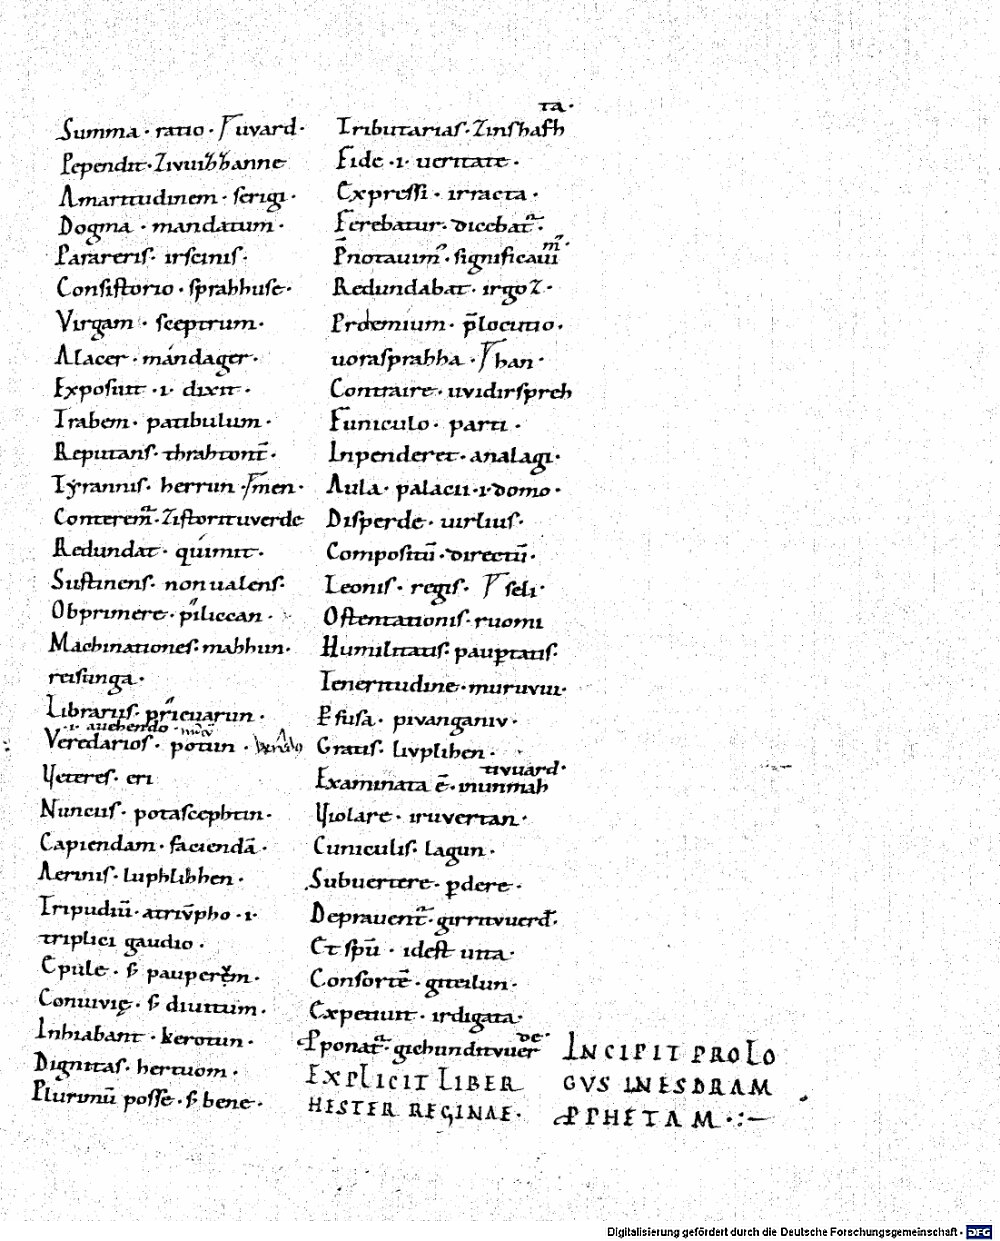 Summa · ratio · uuard ·
Pependit · zivuibbanne
Amaritudinem · serigi ·
Dogma · mandatum ·
Parareris · irscinis ·
Consistorio · sprahhuse ·
Virgam · sceptrum ·
Alacer · mandager ·
Exposuit · i · dixit ·
Trabem · patibulum ·
Reputans · thrahtont̄ ·
Tyrannis · herrun · men ·
Conterem̄ · zistorituverde
Redundat · quimit ·
Sustinens · non ualens ·
Obprimere · piliccan ·
Machinationes · mahhun ·
reisunga ·
Librariis · pricuarun ·
· i · auehendo ·
Veredarios · potun ·
Veteres · eri
Nuncius · potascephtin ·
Capiendam · faciendā ·
Aerinis · luphlihhen ·
Tripudiū · atriūpho · i ·
triplici gaudio ·
Epule · s̄ pauperem ·
Conuivię · s̄ diuitum ·
Inhiabant · kerotun ·
Dignitas · hertuom ·
Plurimū posse · s̄ bene ·
ta ·
Tributarias · zinshafh
Fide · i · ueritate ·
Expressi · irracta ·
Ferebatur · dicebat̄ ·
P̄notauim · significaui
m ·
Redundabat · irgoz ·
Prohemium · p̄locutio ·
uorasprahha · han ·
Contraire · uvidirspreh
Funiculo · parti ·
Inpenderet · analagi ·
Aula · palacii · i · domo ·
Disperde · uirlius ·
Compositū · directū ·
Leonis · regis · seli ·
Ostentationis · ruomi
Humilitatis · paup̄tatis ·
Teneritudine · muruvui ·
Efusa · pivanganiv ·
Gratis · livplihen ·
tivuard ·
Examinata ē · inunmah
Violare · iruvertan ·
Cuniculis · lagun ·
Subuertere · p̄dere ·
Deprauent̄ · girrituuerd̄ ·
Et spū · idest una ·
Consortē · giteilun ·
Expetiuit · irdigata ·
de ·
Pponat̄ · gichunditvuer
EXPLICIT LIBER
HESTER REGINAE ·
INCIPIT PROLO
GVS IN ESDRAM
PPHETAM · : —
Digitalisierung gefördert durch die Deutsche Forschungsgemeinschaft - DFG